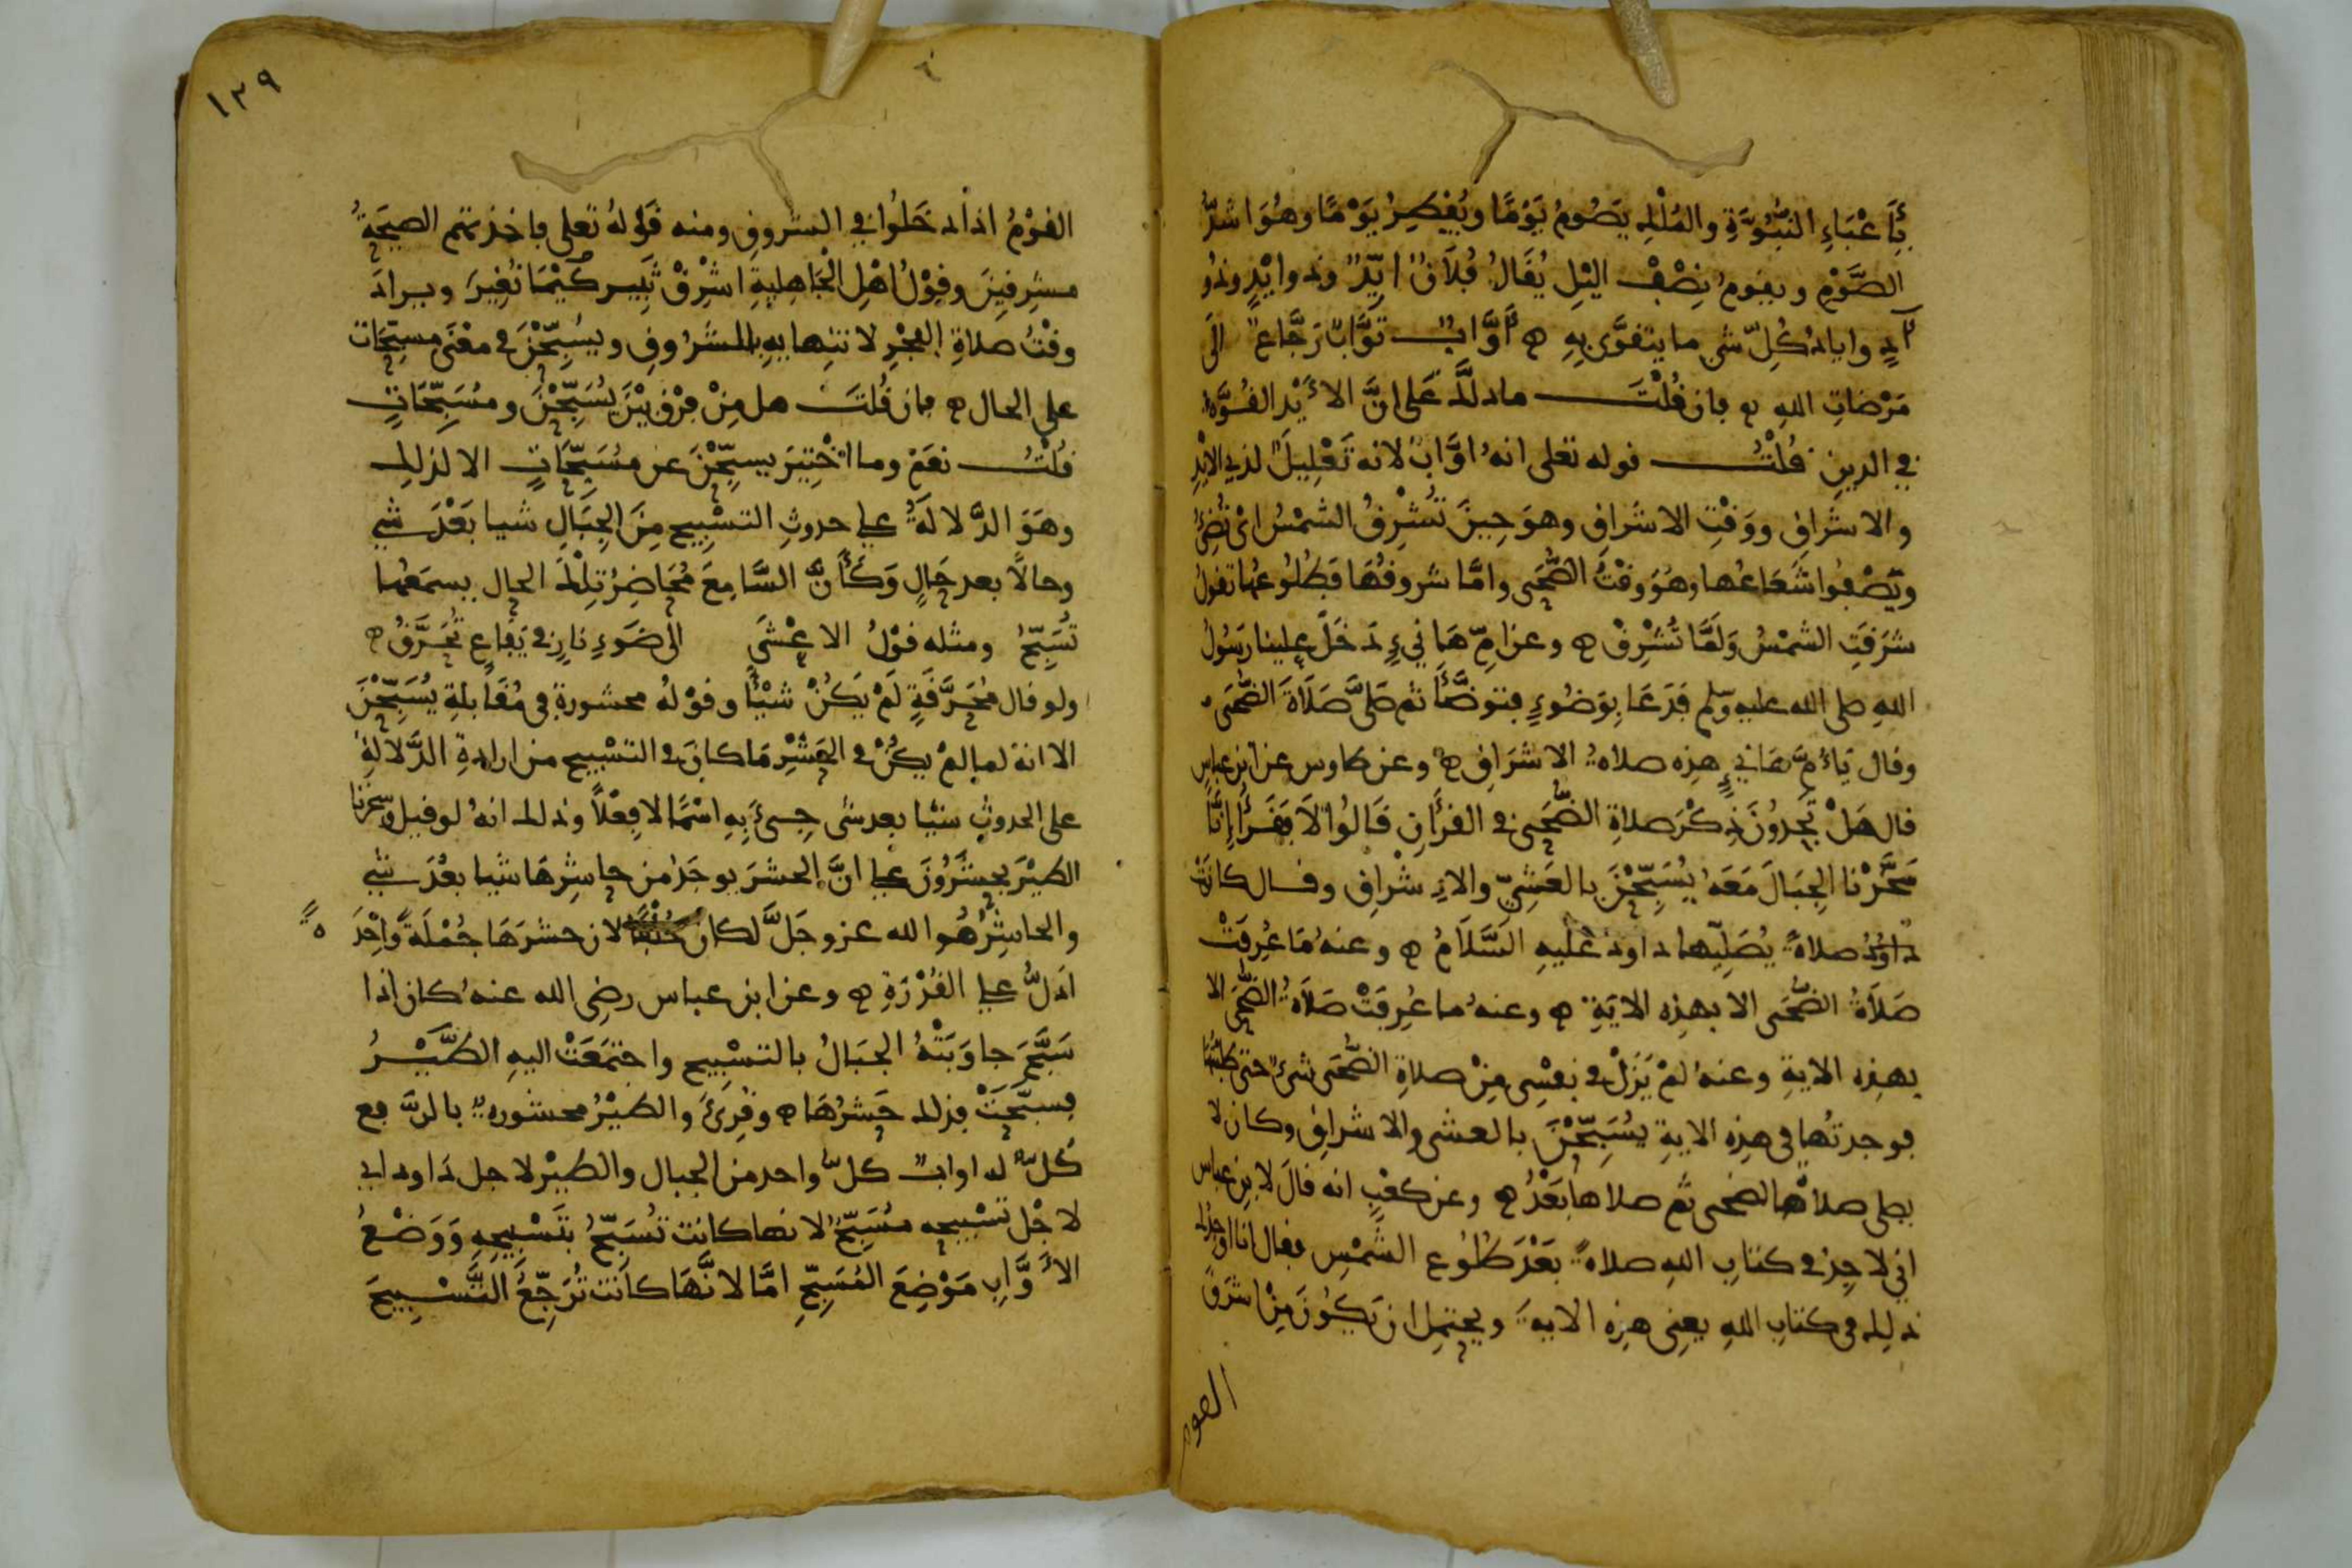 بأعْبَاءِ النُّبُوَّةِ والمُلْكِ يَصُومُ يَوْمًا ويُفْطِرُ يَوْمًا وهُوَ اشدُّ
الصَّوْمِ ويقومُ نِصْفَ اليْلِ يُقَالُ فُلَانٌ ايِّدٌ وذو ايْدٍ وذو
آدٍ واياد كُلِّ شي ما يتقوَّى بِهِ أوَّابٌ توَّابٌ رَجَّاعٌ الَى
مَرْضاتِ اللهِ فان قُلْتَ ما دلَّ عَلى انَّ الأَيْد القُوَّة
في الدينِ قُلْتُ قوله تعلى انهُ اوَّابٌ لانه تَعْلِيلٌ لذي الايْدِ
والاشراقِ ووَقْتِ الاشَراقِ وهوَ حِينَ تُشْرِقُ الشمْسُ اىْ تُضِئُ
ويَصْفُوا شُعَاعُها وهُوَ وقْتُ الضُّحَى وامَّا شروقُهَا فطُلُوعُها تقولُ
شرَقَتِ الشمْسُ وَلَمَّا تُشْرِقْ وعن امِّ هَانِيءٍ دَخَلَ علينا رَسُولُ
اللهِ صلى الله عليه وسلم فَدَعَا بِوَضُوءٍ فتوضَّأَ ثم صَلَّى صَلَاةَ الضُّحَى
وقال يَا أمَّ هَانيءٍ هذِه صلاة الاشرَاقِ وعن طاوس عن ابن عباس
قال هَلْ تَجِدُونَ ذِكْرَ صلاةِ الضُّحَى في القرءَانِ قَالُوا لَا فَقَرَأ إنَّا
سَخَّرْنا الجِبَالَ مَعَهُ يُسَبِّحْنَ بالعَشِيِّ والاِشْراقِ وقال كانَتْ
صلاةً يُصَلِّيها داود عَلَيْهِ السَّلَامُ وعنهُ مَا عُرِفَتْ
صَلَاةُ الضُّحَى الا بهذِه الايَةِ وعنهُ ما عُرِفَتْ صَلَاةُ الضُّحَى الا
بهذِه الايةِ وعنهُ لمْ يَزَلْ في نفْسِى مِنْ صلاةِ الضُّحَى شىءٌ حتى طلبتُها
فوجدتُها في هذِه الايةِ يُسَبِّحْنَ بالعشى والاشراقِ وكان لا
يصلى صلاةَ الضحى ثم صلاها بَعْدُ وعن كعْبٍ انه قالَ لابنِ عباس
اني لا اجِدُ في كتابِ اللهِ صلاةً بَعْدَ طُلُوعِ الشمْسِ فقال انا اوجدُك
ذلِك في كتابِ اللهِ يعنِى هذِه الايةَ ويحتمِل ان يَكُونَ مِنْ اشرَقَ
القوم
١٣٩
القوْمُ اذا دخَلُوا في الشروقِ ومنه قَوْلهُ تعلى فاخذتهم الصيحَةُ
مشرقِينَ وقوْلُ اهْلِ الجَاهِليةِ اشْرِقْ ثَبِير كَيْمَا نُغِيرَ ويراد
وقْتُ صلاةِ الفجْرِ لانتِهايهِ بالشرُوقِ ويُسَبِّحْنَ في معْنَى مسبِّحَات
على الحال فان قُلتَ هل مِنْ فرْقٍ بَيْنَ يُسَبِّحْنَ ومُسَبِّحَاتٍ
قُلْتُ نعَمْ وما اخْتِيرَ يسبِّحْنَ عن مُسَبِّحَاتٍ الا لذلك
وهوَ الدَّلالَةُ على حدوثِ التسْبِيحِ مِنَ الجِبَالِ شيا بَعْدَ شيٍ
وحالًا بعد حَالٍ وَكَأَنَّ السَّامِعَ مُحَاضِرُ تِلْكَ الحال يسمَعُها
تُسَبِّحُ ومثله قوْلُ الاعْشَى الَى ضَوءِ نارٍ في يَفَاعٍ تُحَرَّقُ
ولو قال مُحَرَّقَةٍ لَمْ يَكُنْ شَيْئًا وقوْلهُ محشورة في مُقَابلةِ يُسَبِّحْنَ
الا انه لما لمْ يكُنْ في الحَشْرِ مَا كانَ في التسْبيح من ارادةِ الدَّلالةِ
على الحدوثِ شيْا بعد شى جِىءَ بِهِ اسْمًا لا فِعْلًا وذلك انهُ لو قيل وسخرنا
الطيْرَ يحشَرُونَ على انَّ الحشرَ يوجَدُ من حاشِرِهَا شيا بعْدَ شيٍ
والحاشِرُ هُو الله عز وجَلَّ لكان خُلْفًا لان حشرَهَا جُمْلَةً وَاحِدَةً
ادَلُّ على القُدْرَةِ وعن ابن عباس رضِى الله عنهُ كان اذا
سَبَّحَ جاوَبَتْهُ الجبَالُ بالتسْبِيحِ واجتمَعَتْ اليهِ الطَّيْرُ
فسبَّحَتْ فذلك حَشْرُهَا وقُرِئَ والطيْرُ محشورة بالرَّفع
كُلٌّ له اوابٌ كلُّ واحد من الجبال والطيْر لاجل دَاود اي
لاجْلِ تسْبيحِه مُسَبِّحٌ لانها كانت تُسَبِّحُ بتَسْبِيحِهِ وَوَضْعُ
الأَوَّابِ مَوْضِعَ المُسَبِّحِ امَّا لانَّهَا كانَت تُرَجِّعُ التَّسْبِيحَ